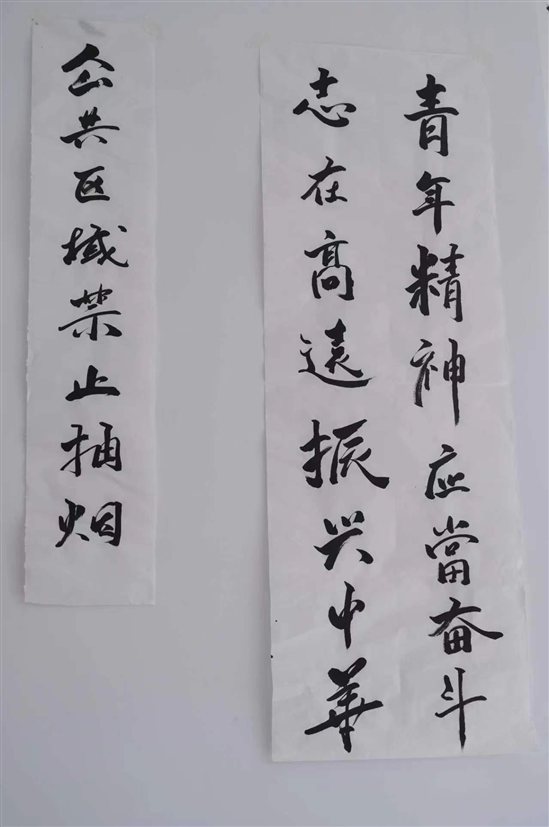 青年精神应當奋斗
志在高遠振兴中華
公共区域禁止抽烟